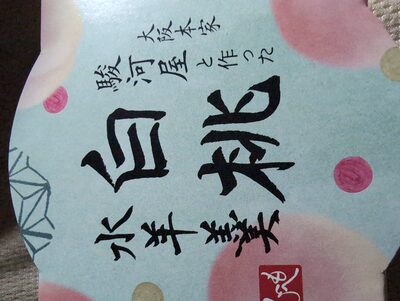 大阪本家
駿河屋と作った
白桃
水羊羹